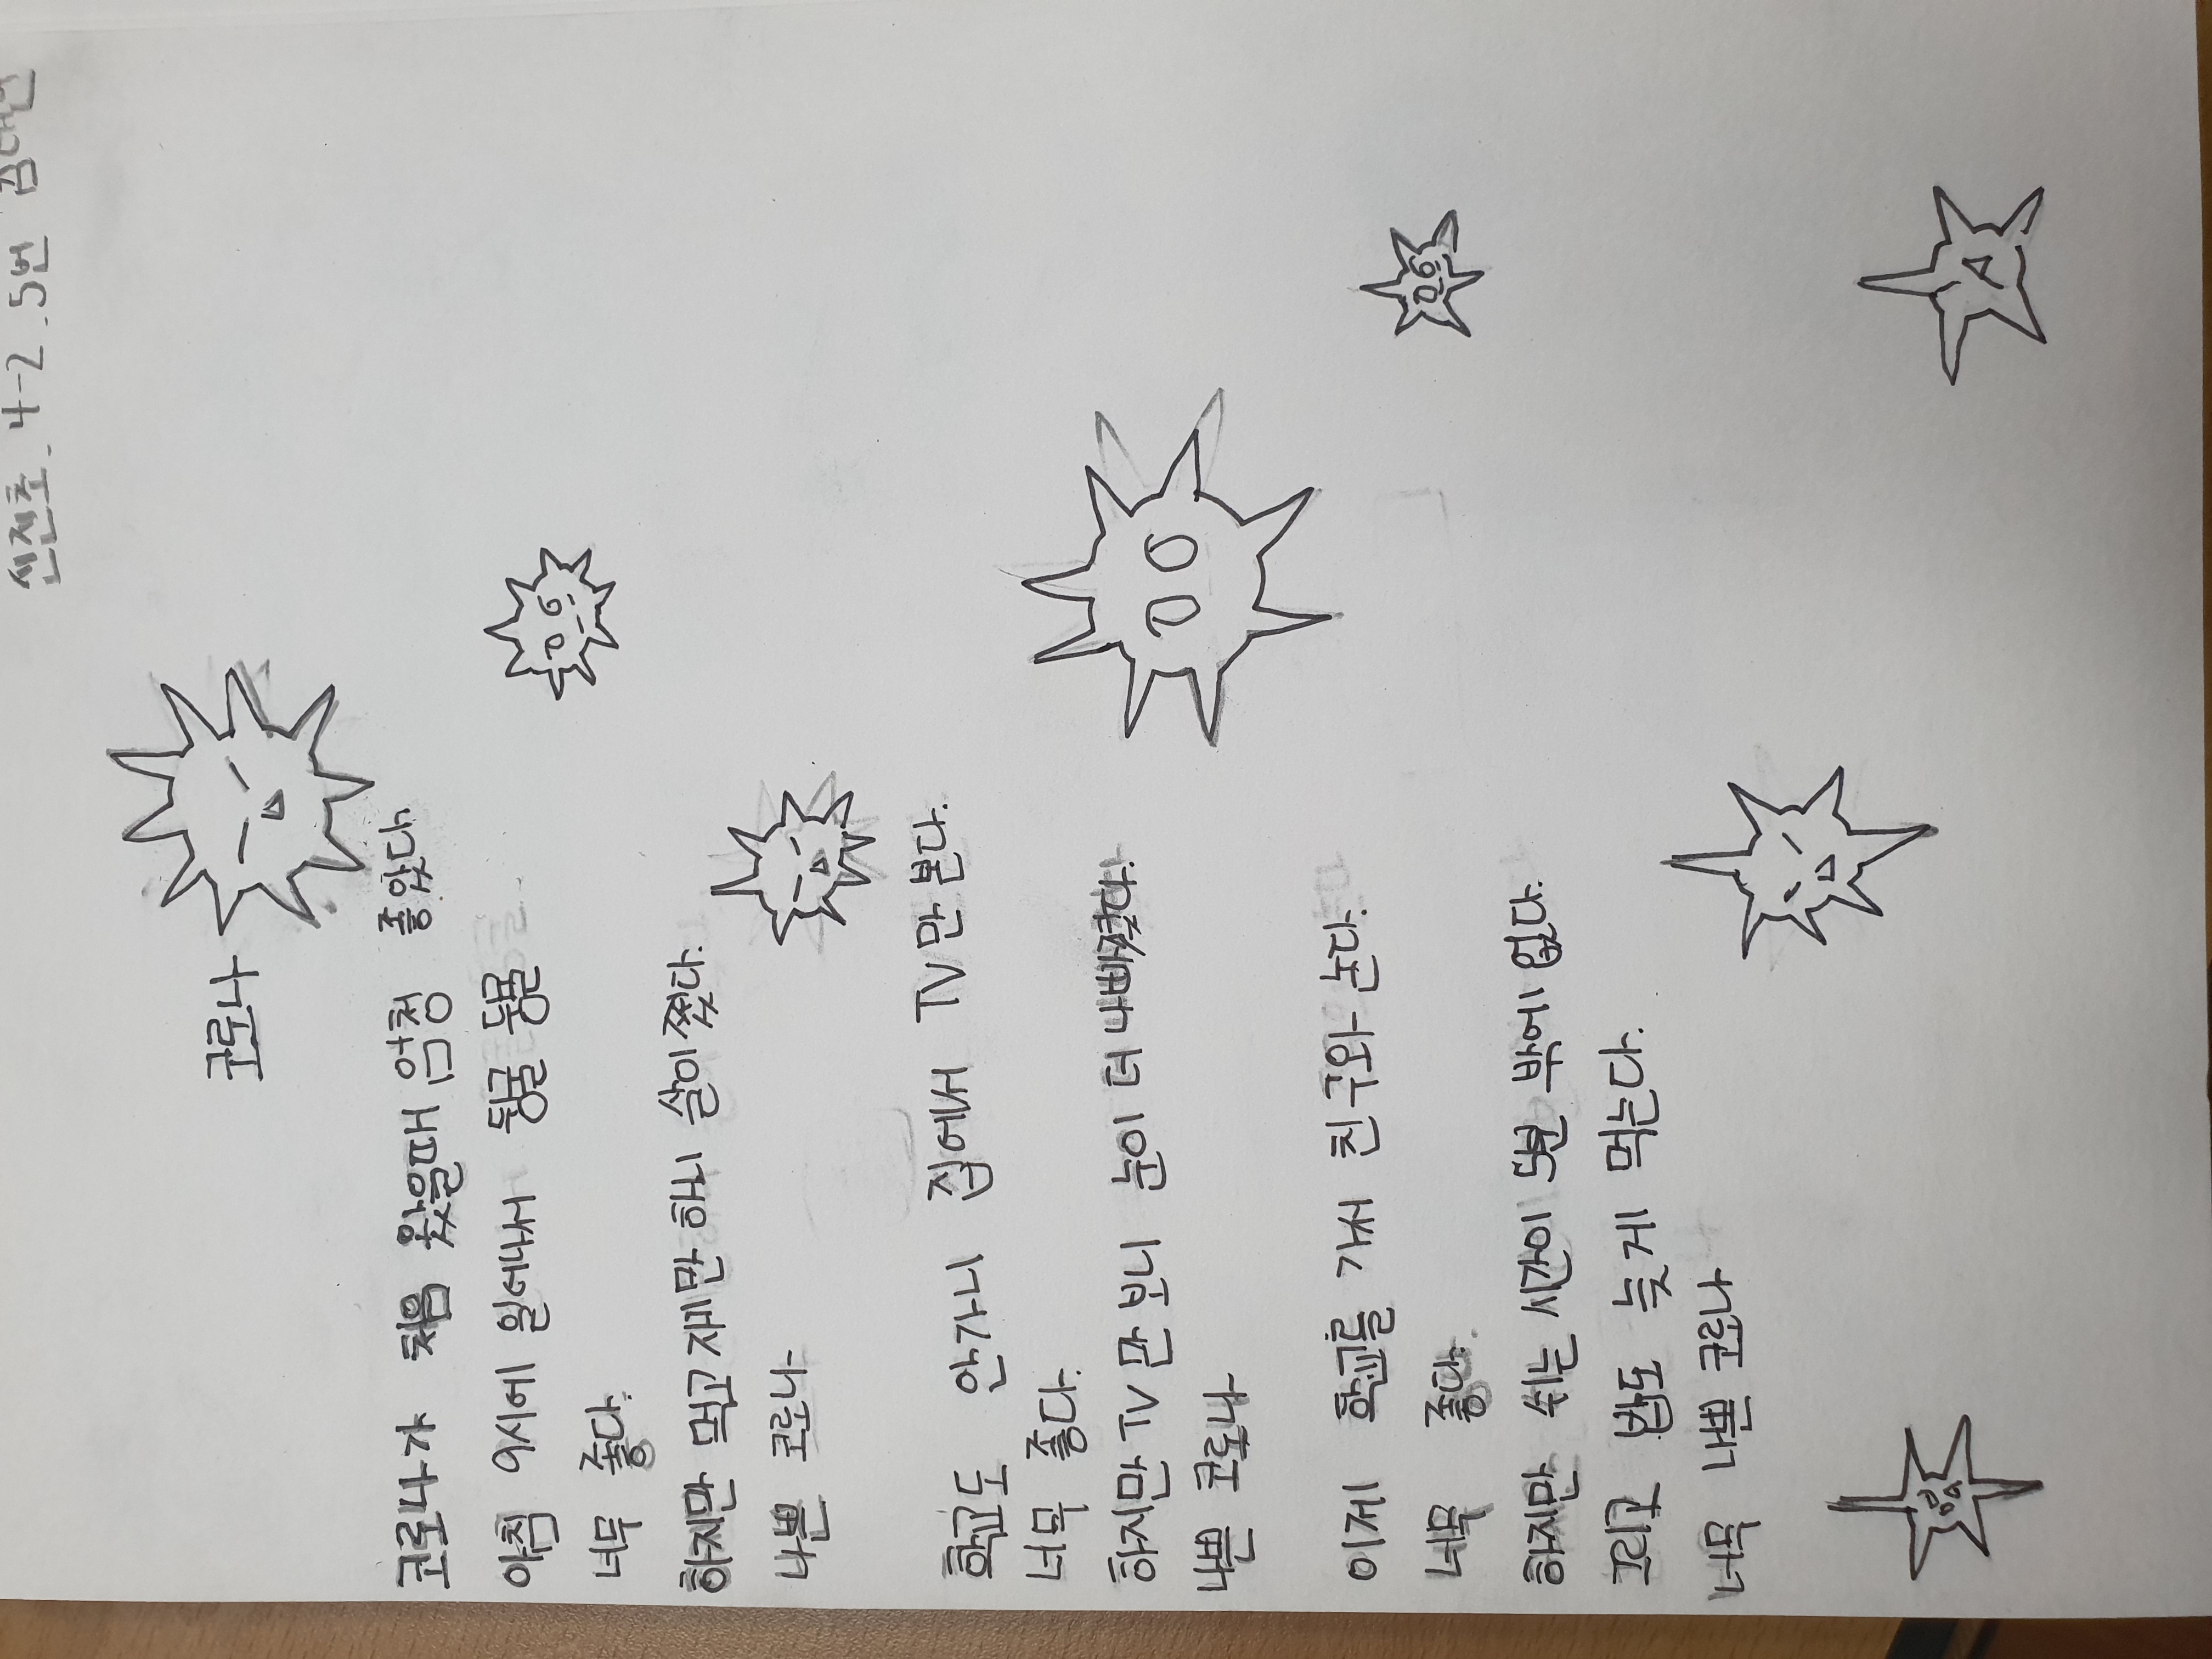 4-2. 5번
코로나
코로나가 처음 왔을때 엄청 좋았다.
아침 9시에 일에나서 뒹굴 뒹굴
너무 좋다.
하지만 먹고 자기만 하니 살이 쪘다.
나쁜 코로나
학교도 안가니 집에서 TV만 본다.
너무 좋다.
하지만 TV만 보니 눈이 더 나빠졌다.
나쁜 코로나
이제 학교를 가서 친구와 논다.
너무 좋다.
하지만 쉬는 시간이 5분 밖에 없다.
그리고 밥도 늦게 먹는다.
너무 나쁜 코로나